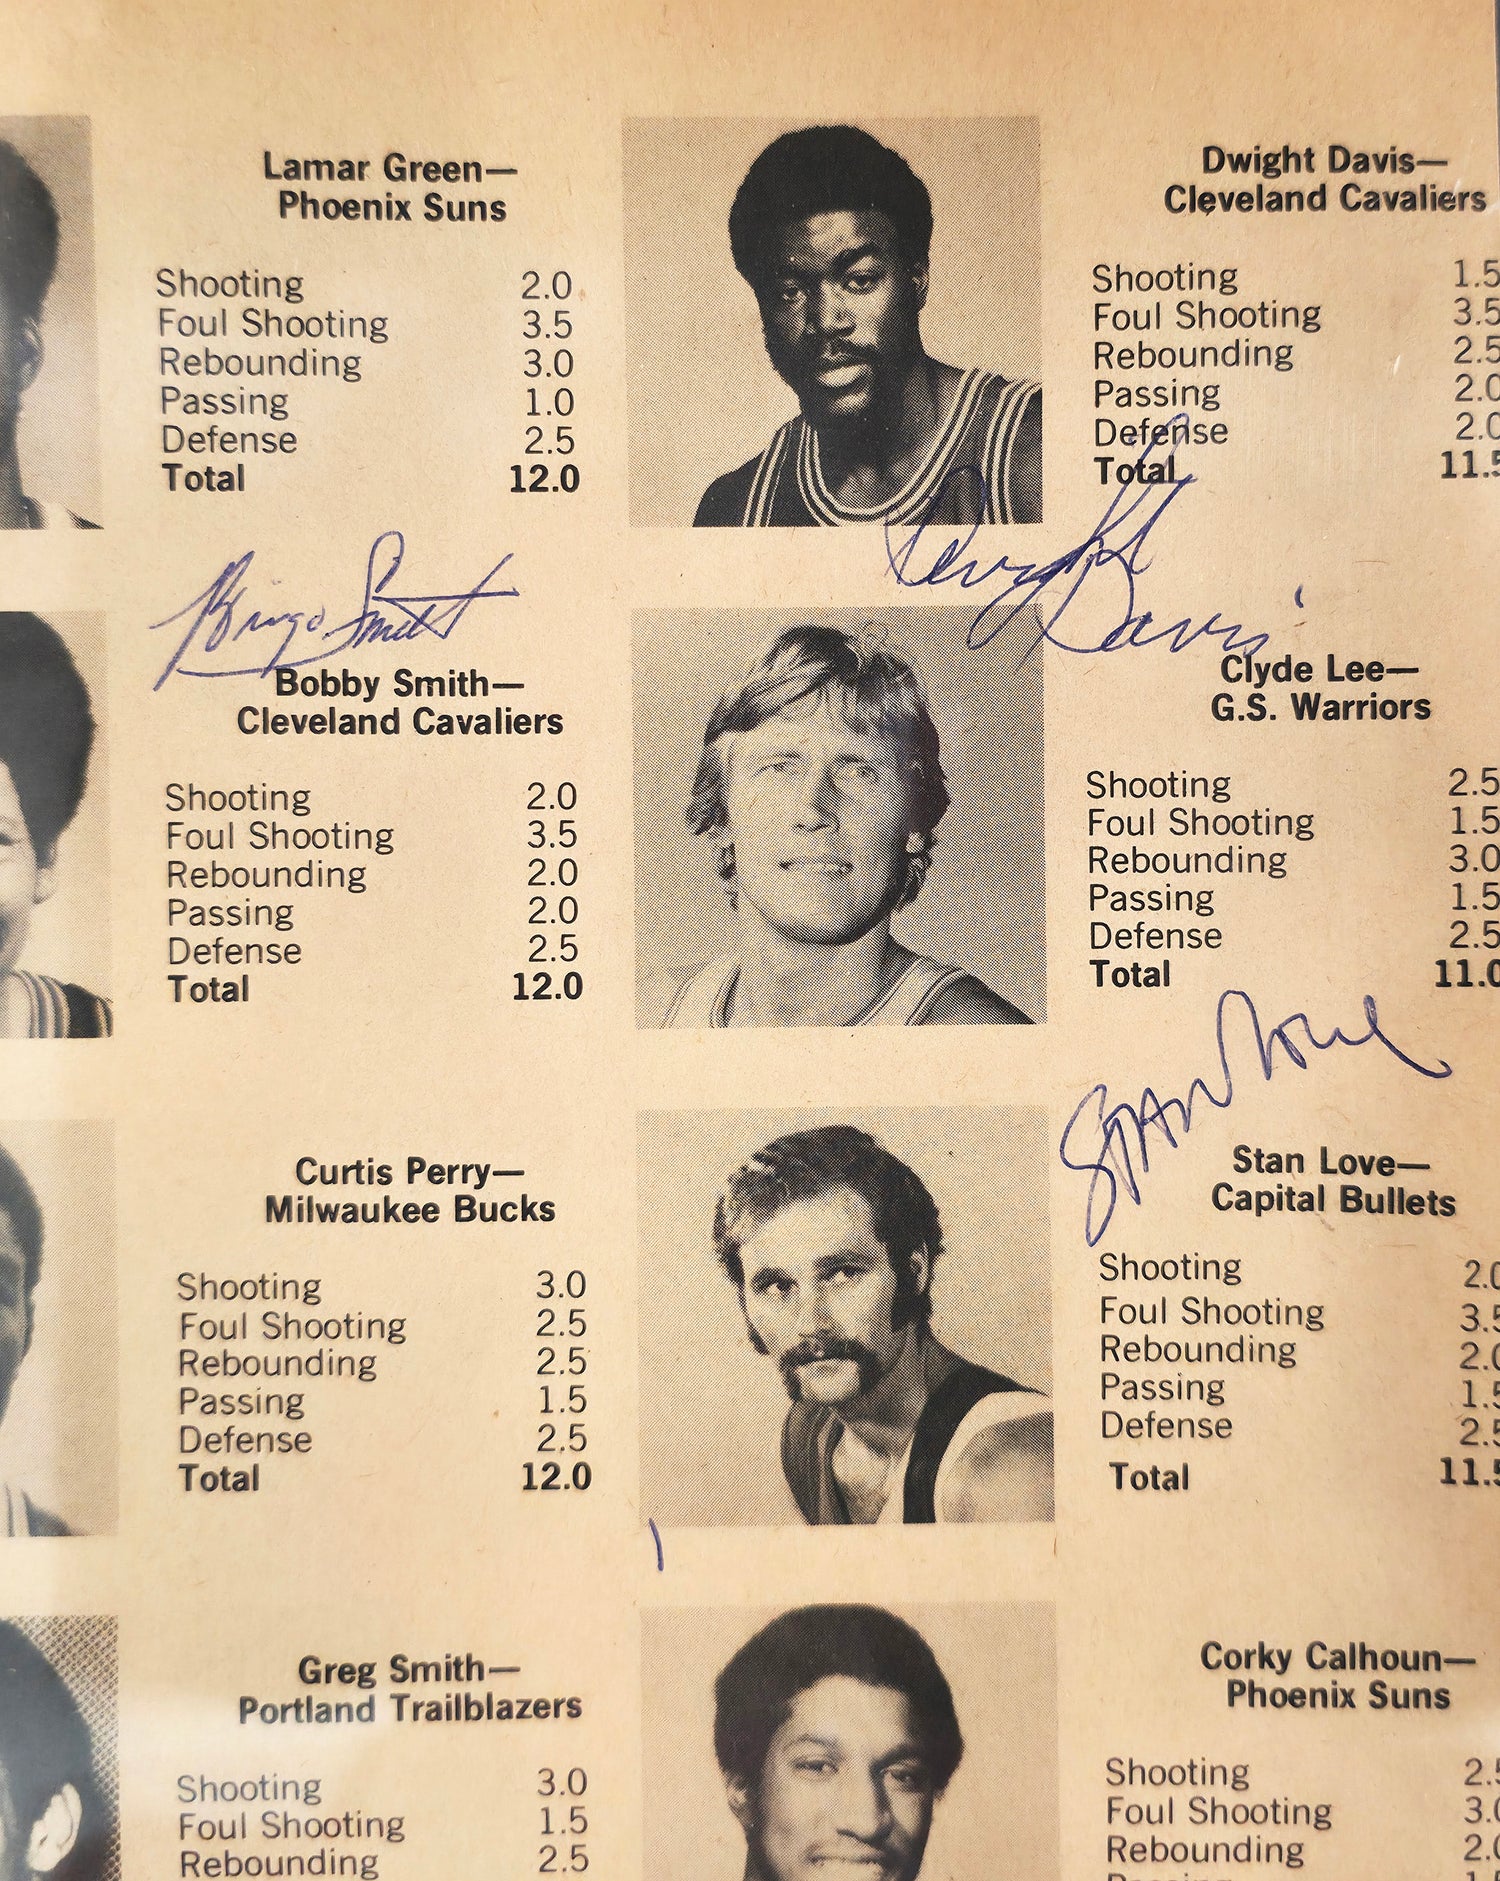 Lamar Green—
Phoenix Suns
Shooting 2.0
Foul Shooting 3.5
Rebounding 3.0
Passing 1.0
Defense 2.5
Total 12.0
Dwight Davis—
Cleveland Cavaliers
Shooting 1.5
Foul Shooting 3.5
Rebounding 2.5
Passing 2.0
Defense 2.0
Total 11.5
Bingo Smith
Bobby Smith—
Cleveland Cavaliers
Shooting 2.0
Foul Shooting 3.5
Rebounding 2.0
Passing 2.0
Defense 2.5
Total 12.0
Dwight Davis
Clyde Lee—
G.S. Warriors
Shooting 2.5
Foul Shooting 1.5
Rebounding 3.0
Passing 1.5
Defense 2.5
Total 11.0
Curtis Perry—
Milwaukee Bucks
Shooting 3.0
Foul Shooting 2.5
Rebounding 2.5
Passing 1.5
Defense 2.5
Total 12.0
Stan Love
Stan Love—
Capital Bullets
Shooting 2.0
Foul Shooting 3.5
Rebounding 2.0
Passing 1.5
Defense 2.5
Total 11.5
Greg Smith—
Portland Trailblazers
Shooting 3.0
Foul Shooting 1.5
Rebounding 2.5
Corky Calhoun—
Phoenix Suns
Shooting 2.5
Foul Shooting 3.0
Rebounding 2.0